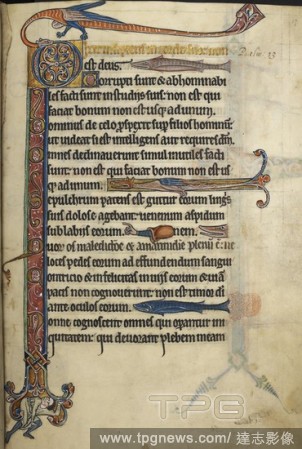 Dixit insipiens in corde suo: non
est deus.
Corrupti sunt & abhominabi
les facti sunt in studijs suis: non est qui
faciat bonum non est usq; ad unum.
Dominus de celo prospexit sup filios hominum
ut uideat si est intelligens aut requirens dm.
Omnes declinauerunt simul inutiles facti
sunt non est qui faciat bonum non est
usq; ad unum.
Sepulchrum patens est guttur eorum linguis
suis dolose agebant uenenum aspidum
sub labiis eorum.
Quor os maledictione & amaritudine plenū ē: ue
loces pedes eorum ad effundendum sangui
Contricio & infelicitas in uijs eorum & uiā
pacis non cognouerunt: non est timor di
ante oculos eorum.
Nonne cognoscent omnes qui operantur in
iquitatem: qui deuorant plebem meam
TPG
www.tpgnews.com/ 達志影像